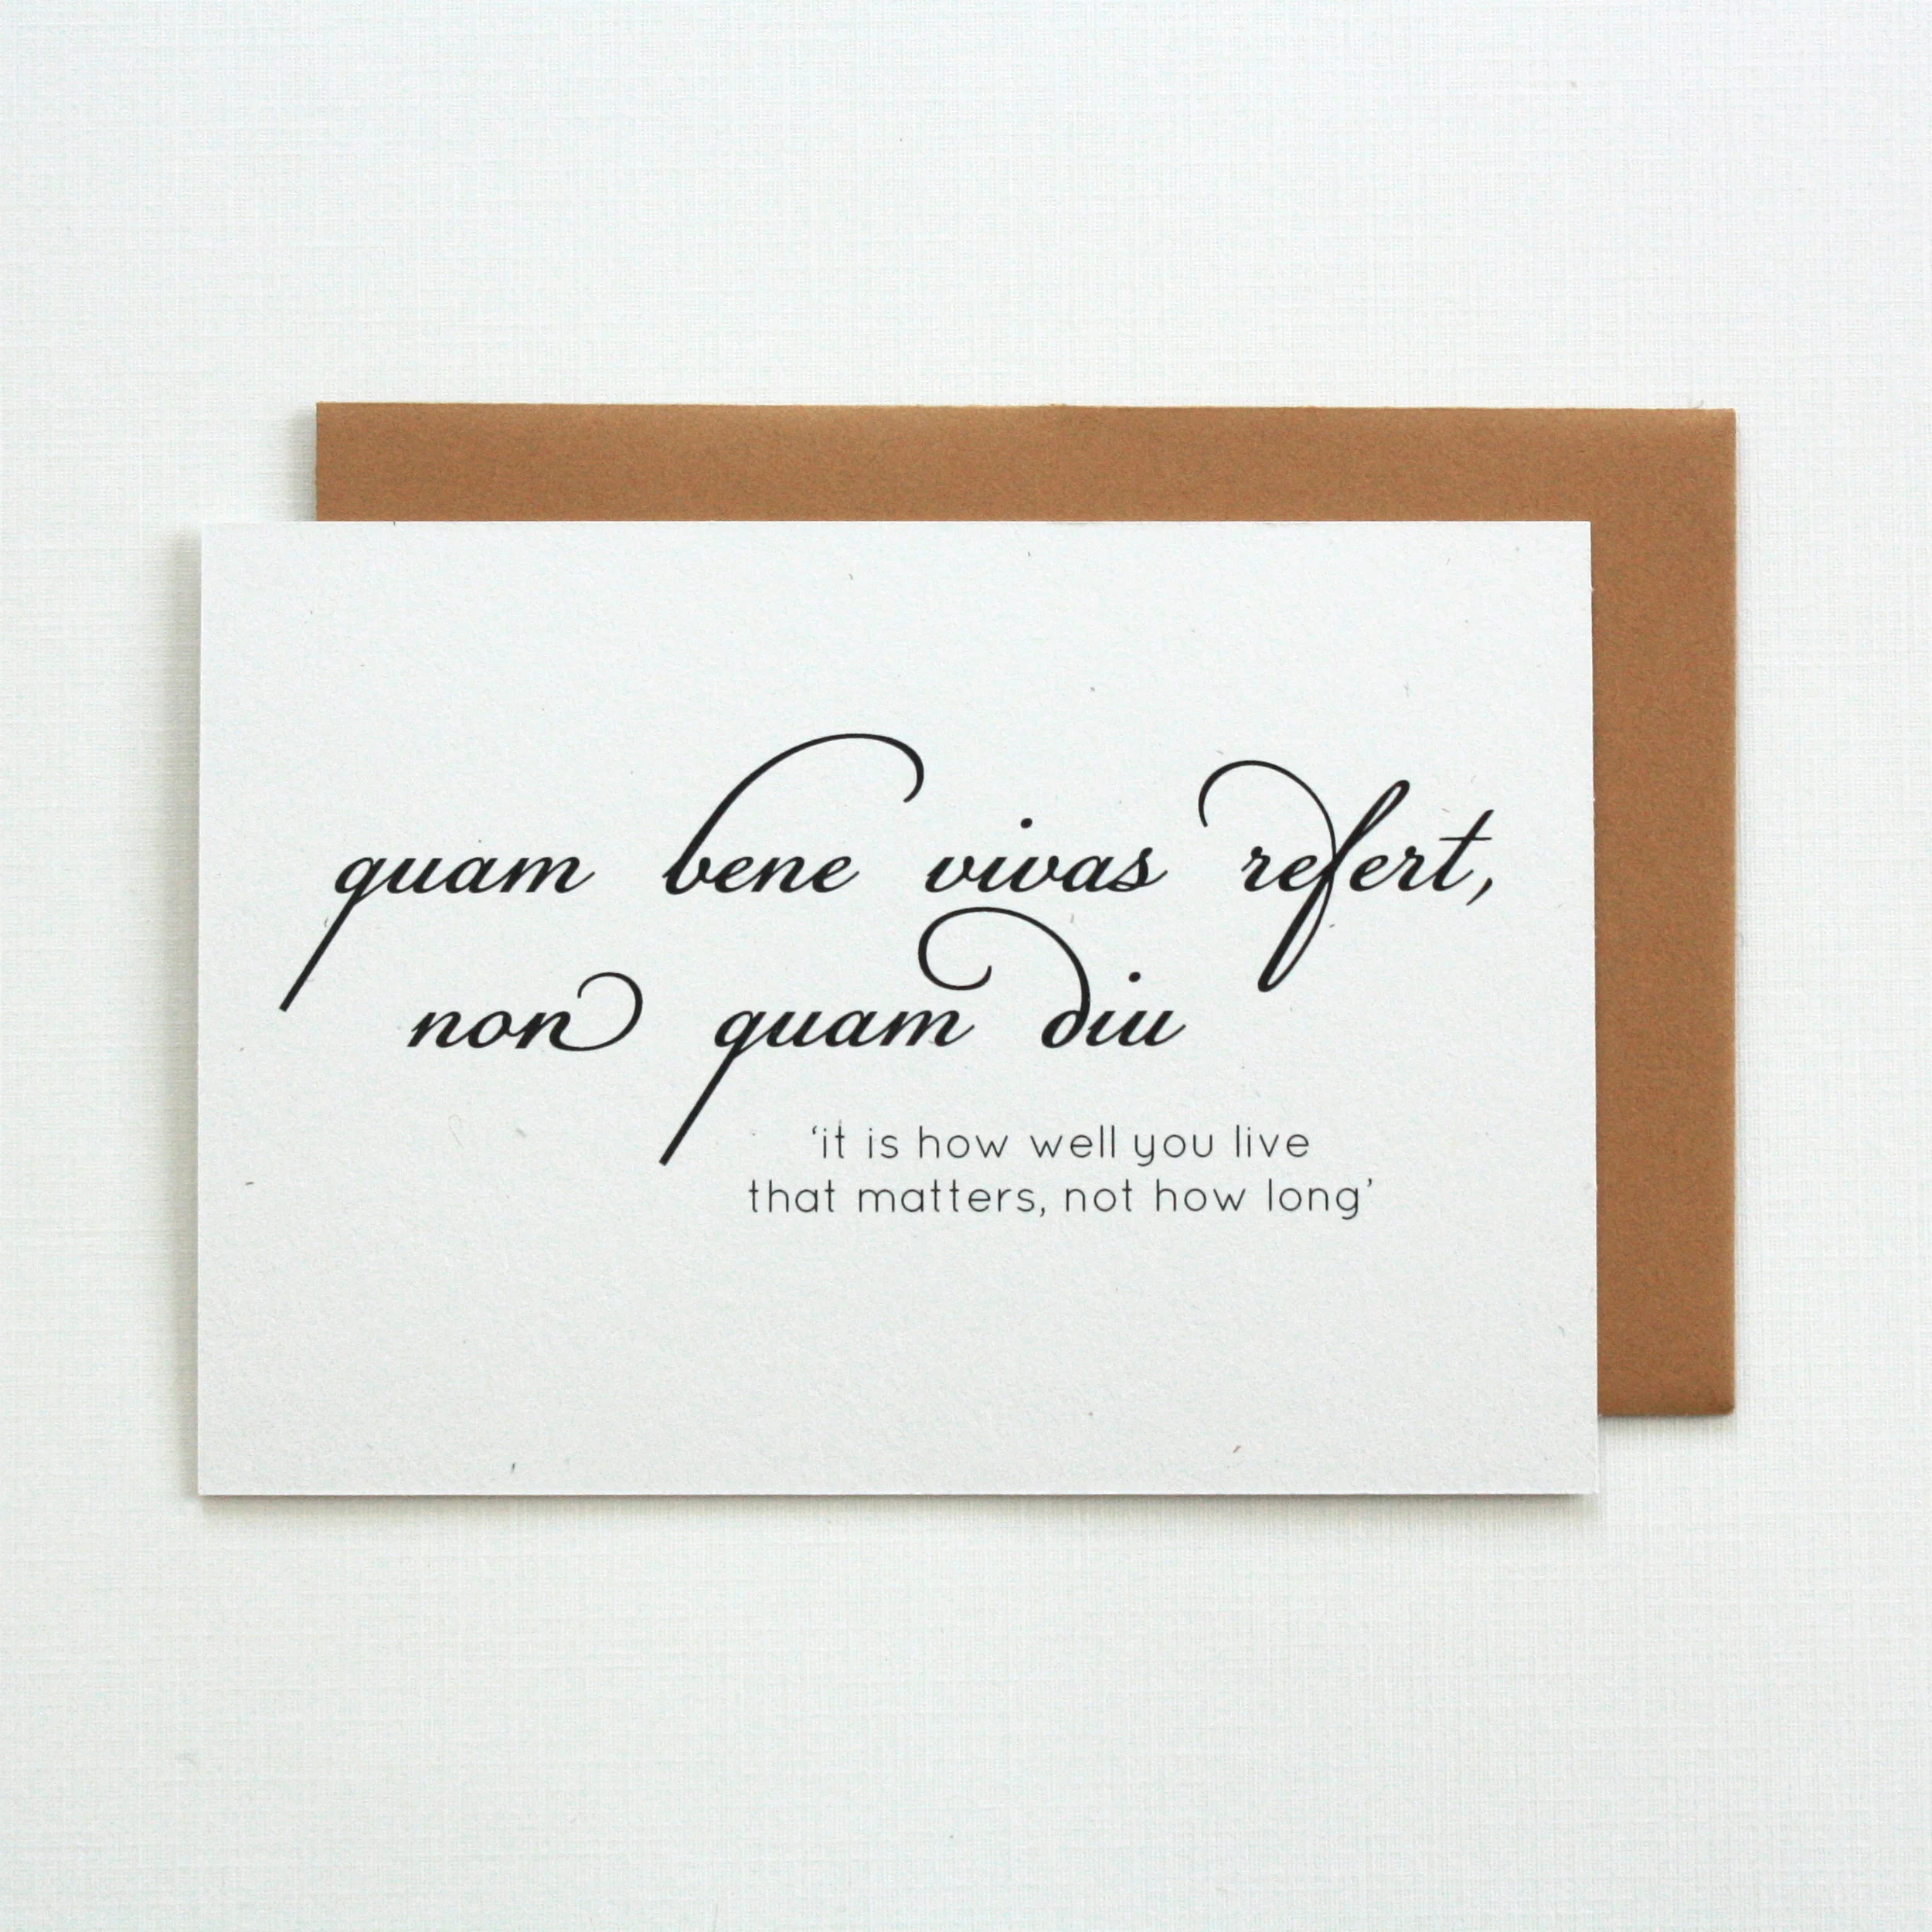 quam bene vivas refert,
non quam diu
‘it is how well you live
that matters, not how long’